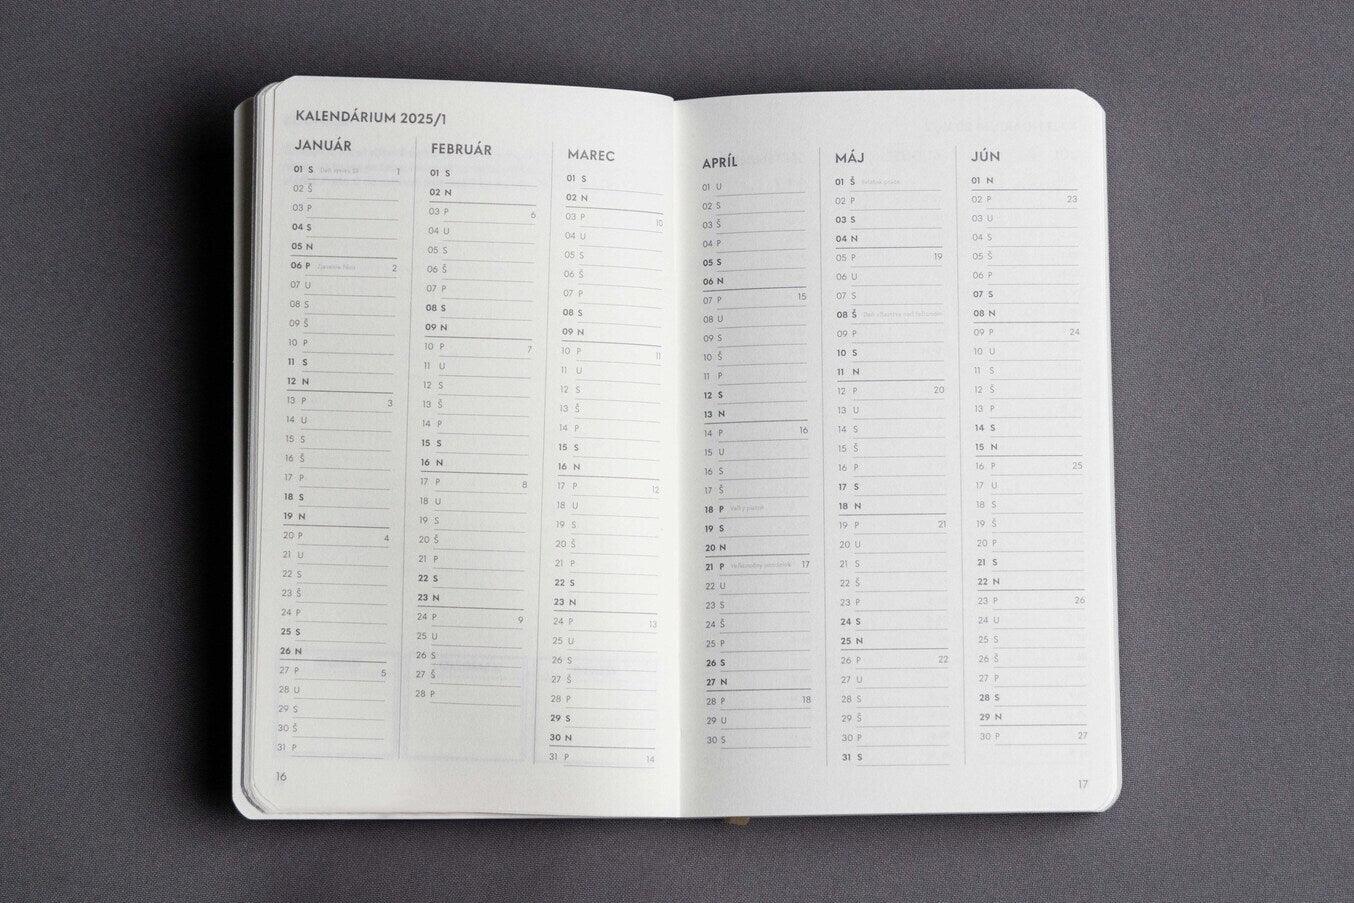 KALENDÁRIUM 2025/1
JANUÁR
01 S Deň vzniku SR 1
02 Š
03 P
04 S
05 N
06 P Zjavenie Pána 2
07 U
08 S
09 Š
10 P
11 S
12 N
13 P 3
14 U
15 S
16 Š
17 P
18 S
19 N
20 P 4
21 U
22 S
23 Š
24 P
25 S
26 N
27 P 5
28 U
29 S
30 Š
31 P
16
FEBRUÁR
01 S
02 N
03 P 6
04 U
05 S
06 Š
07 P
08 S
09 N
10 P 7
11 U
12 S
13 Š
14 P
15 S
16 N
17 P 8
18 U
19 S
20 Š
21 P
22 S
23 N
24 P 9
25 U
26 S
27 Š
28 P
MAREC
01 S
02 N
03 P 10
04 U
05 S
06 Š
07 P
08 S
09 N
10 P 11
11 U
12 S
13 Š
14 P
15 S
16 N
17 P 12
18 U
19 S
20 Š
21 P
22 S
23 N
24 P 13
25 U
26 S
27 Š
28 P
29 S
30 N
31 P 14
APRÍL
01 U
02 S
03 Š
04 P
05 S
06 N
07 P 15
08 U
09 S
10 Š
11 P
12 S
13 N
14 P 16
15 U
16 S
17 Š
18 P Veľký piatok
19 S
20 N
21 P Veľkonočný pondelok 17
22 U
23 S
24 Š
25 P
26 S
27 N
28 P 18
29 U
30 S
MÁJ
01 Š Sviatok práce
02 P
03 S
04 N
05 P 19
06 U
07 S
08 Š Deň víťazstva nad fašizmom
09 P
10 S
11 N
12 P 20
13 U
14 S
15 Š
16 P
17 S
18 N
19 P 21
20 U
21 S
22 Š
23 P
24 S
25 N
26 P 22
27 U
28 S
29 Š
30 P
31 S
JÚN
01 N
02 P 23
03 U
04 S
05 Š
06 P
07 S
08 N
09 P 24
10 U
11 S
12 Š
13 P
14 S
15 N
16 P 25
17 U
18 S
19 Š
20 P
21 S
22 N
23 P 26
24 U
25 S
26 Š
27 P
28 S
29 N
30 P 27
17